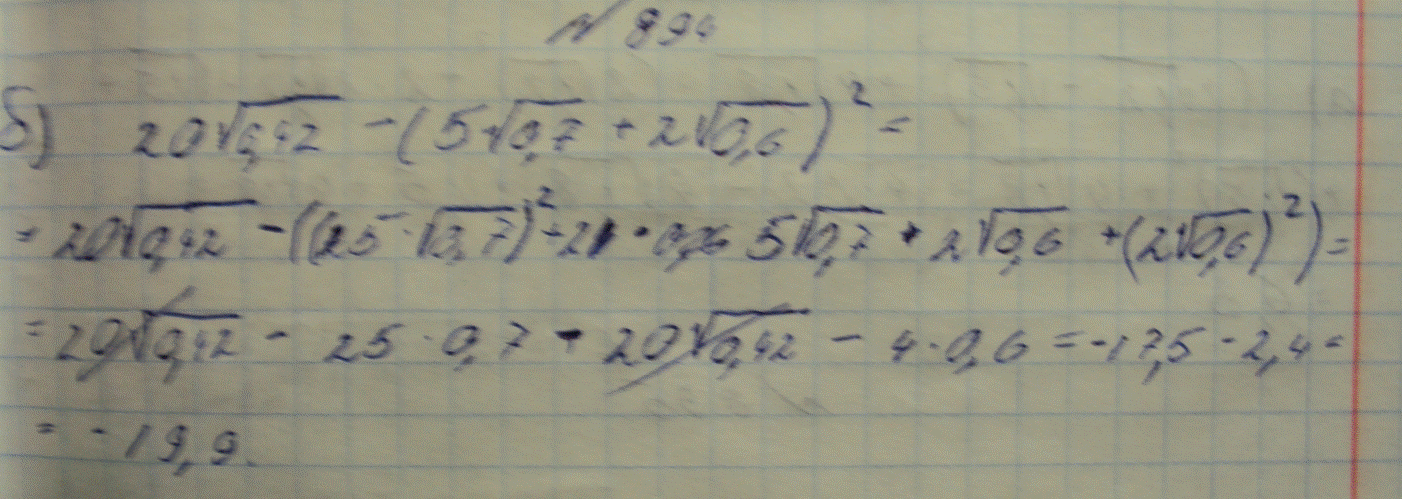 № 894
б) 20√0,42 - (5√0,7 + 2√0,6)² =
= 20√0,42 - ((25·√0,7)² + 2 · 5√0,7 · 2√0,6 + (2√0,6)²) =
= 20√0,42 - 25 · 0,7 - 20√0,42 - 4 · 0,6 = -17,5 - 2,4 =
= -19,9.